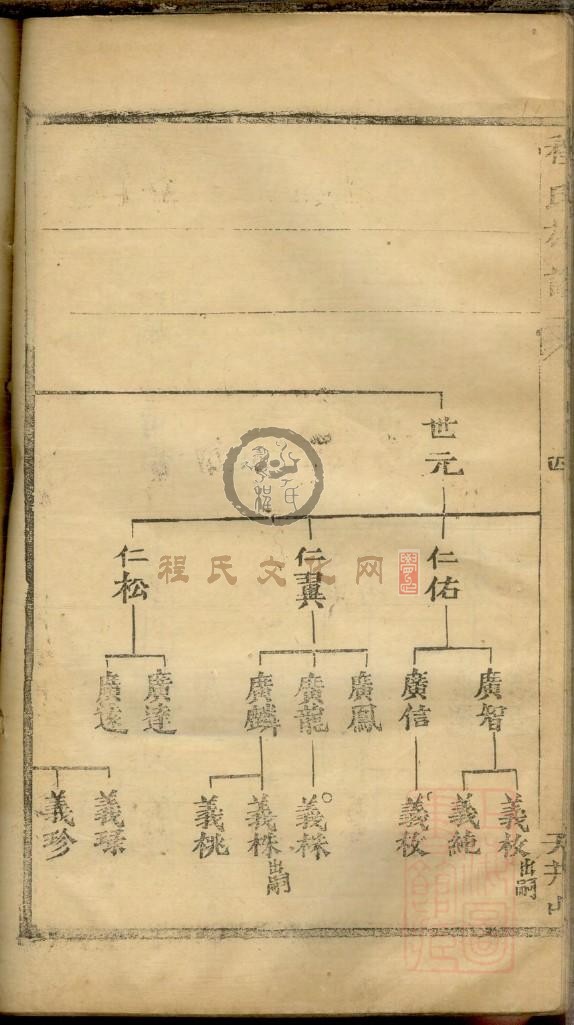 程氏
四
天井山
世元
仁佑
仁翼
仁松
廣智
廣信
廣鳳
廣龍
廣麟
廣達
廣遠
義枚出嗣
義純
義枚
義株
義株出嗣
義桃
義珍
程氏文化网